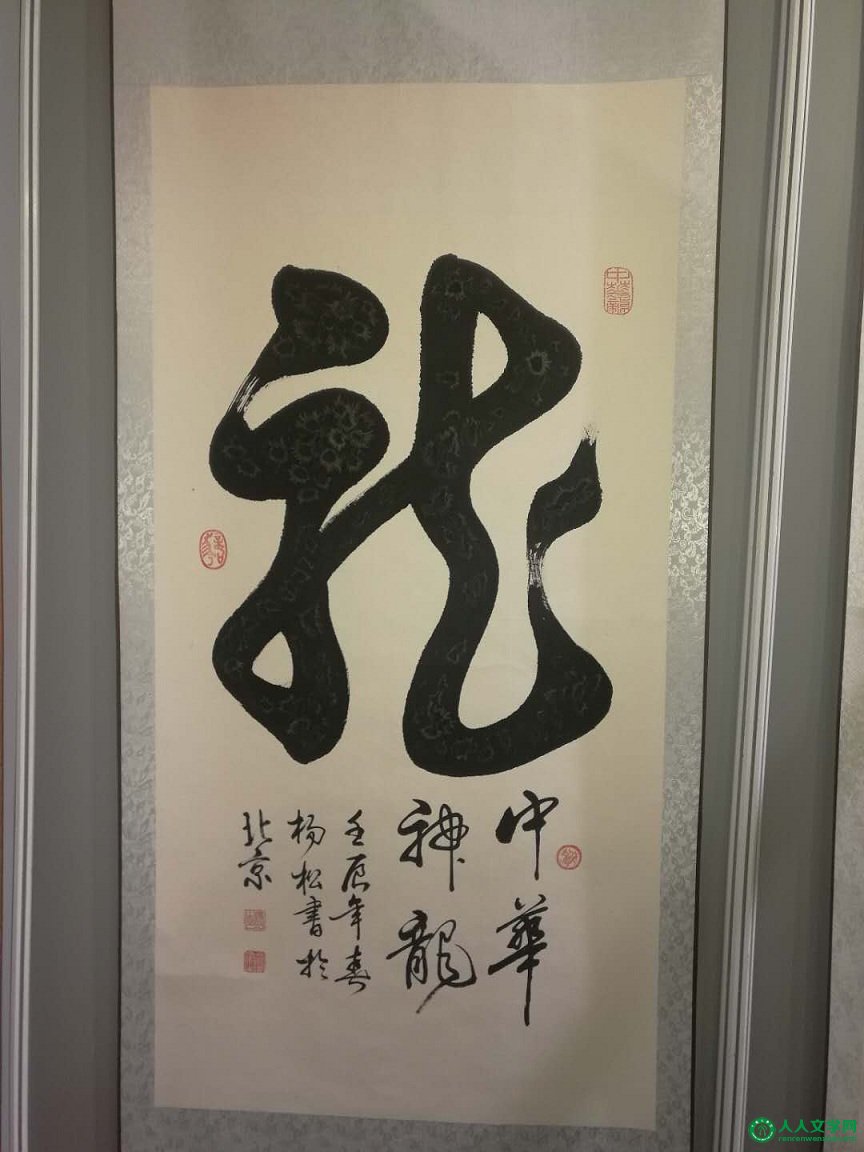 龍
中華
神龍
壬辰年春
楊松書於
北京
人人文学网
renrenwenxue.com